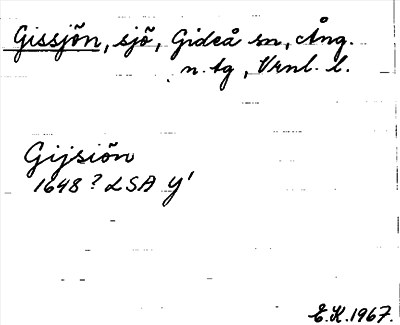 Gissjön, sjö, Gideå sn, Ång.
n. tg, Vrnl. l.
Gijsiön
1648? LSA Y'
E.K. 1967.